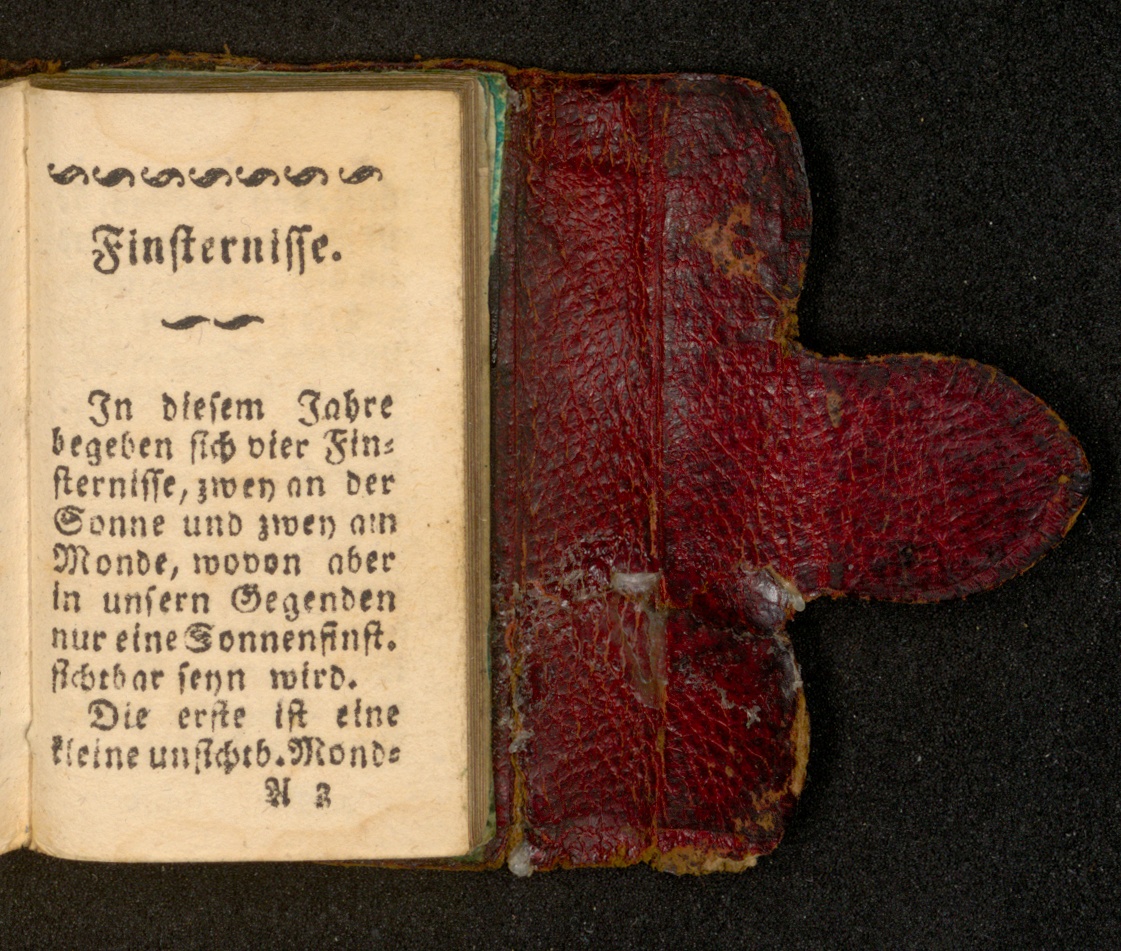 Finſterniſſe.
In dieſem Jahre
begeben ſich vier Fin⸗
ſterniſſe, zwey an der
Sonne und zwey am
Monde, wovon aber
in unſern Gegenden
nur eine Sonnenfinſt.
ſichtbar ſeyn wird.
Die erſte iſt eine
kleine unſichtb. Mond⸗
A 3